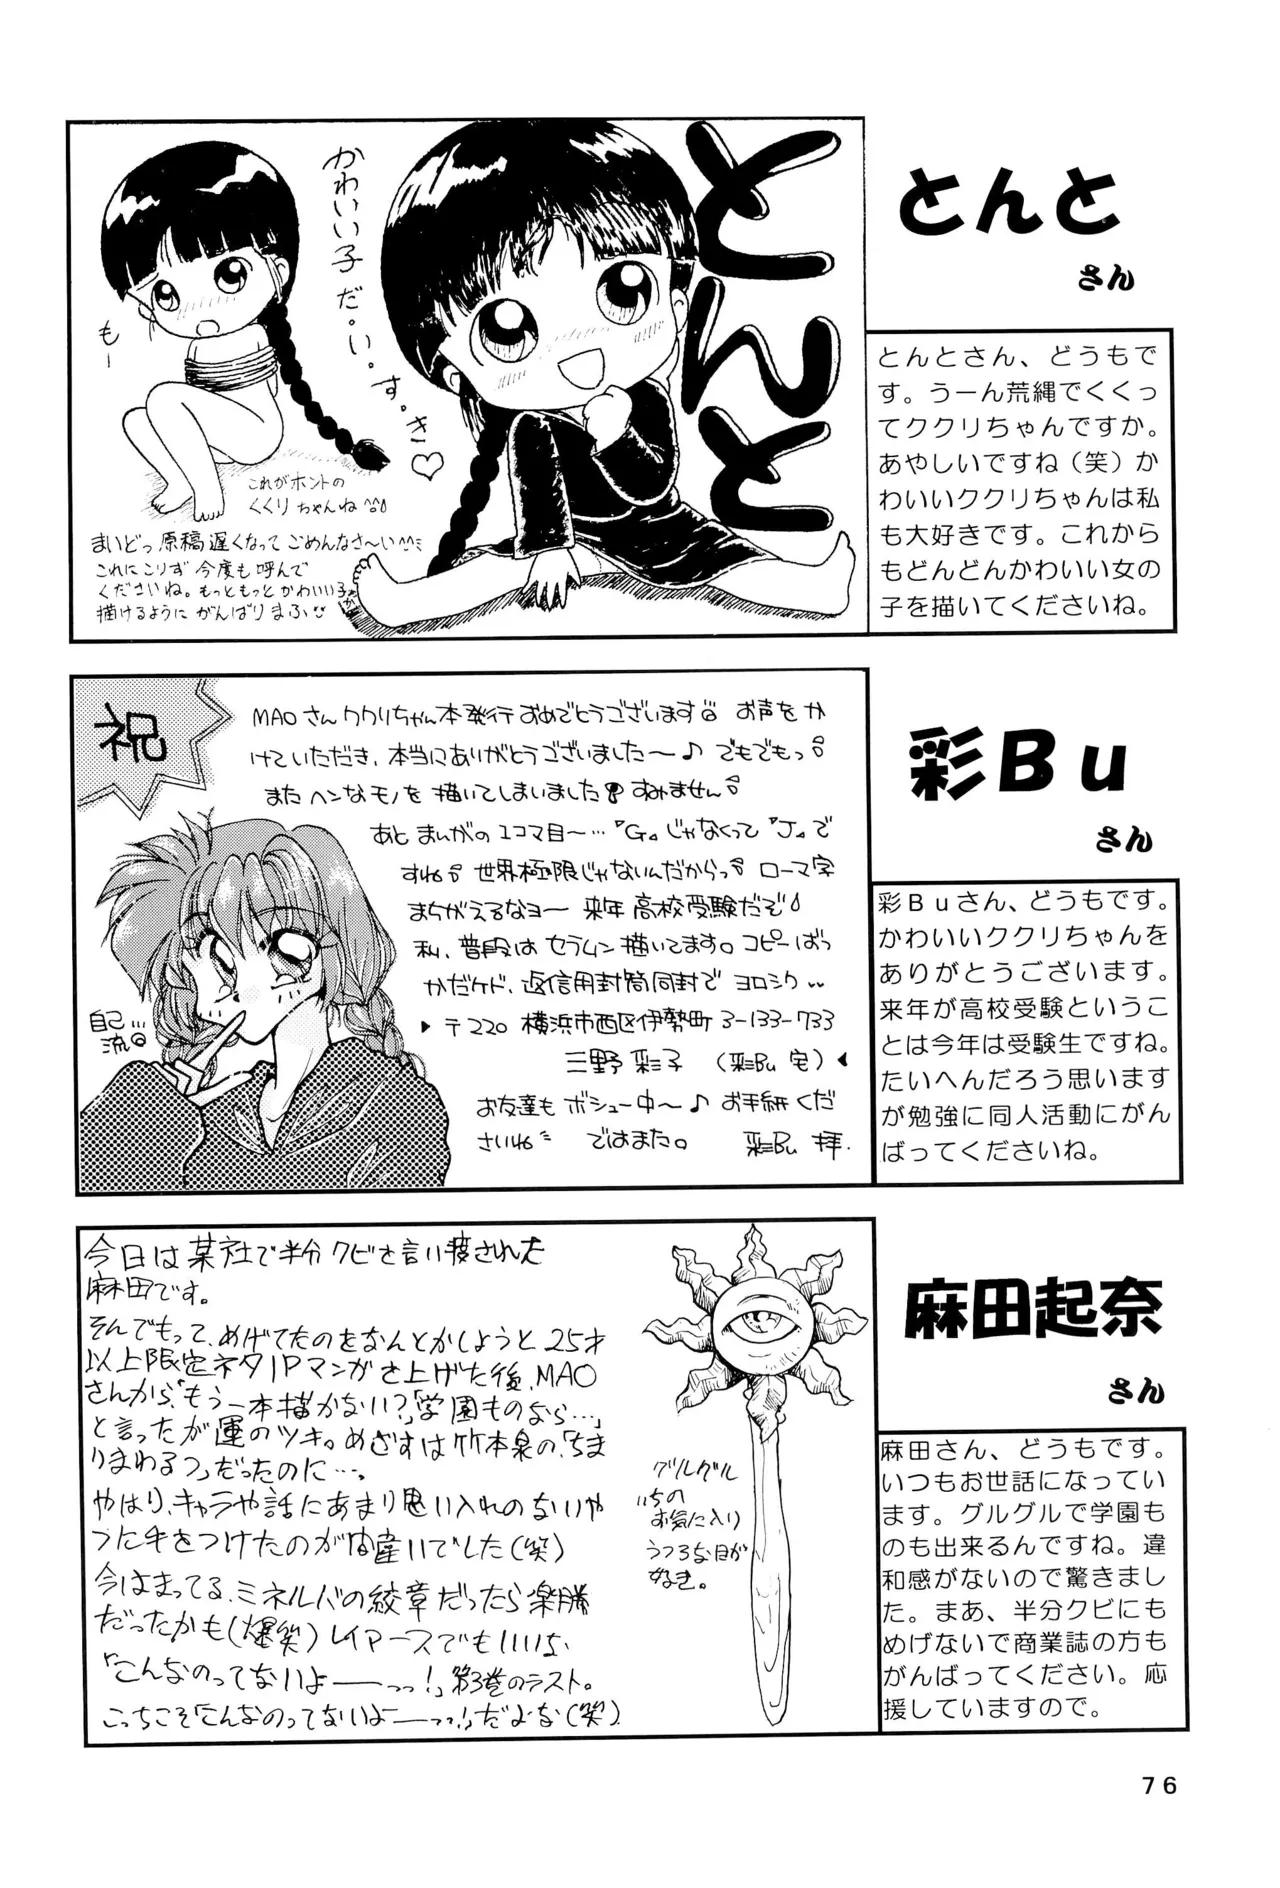 とんと
さん
とんと
かわいい子だ・い・す・き♡
もー
これがホントの
くくりちゃんね
まいどっ原稿遅くなってごめんなさ〜い
これにこりず今度も呼んで
くださいね。もっともっとかわいい子が
描けるようにがんばりまふ
とんとさん、どうもで
す。うーん荒縄でくくっ
てククリちゃんですか。
あやしいですね（笑）か
わいいククリちゃんは私
も大好きです。これから
もどんどんかわいい女の
子を描いてくださいね。
彩Ｂｕ
さん
祝
MAOさんククリちゃん本発行おめでとうございます お声をか
けていただき、本当にありがとうございました〜♪でもでもっ
またヘンなモノを描いてしまいました すみません
あとまんがの1コマ目〜…『G』じゃなくって『J』で
すね 世界極限じゃないんだからっ ローマ字
まちがえるなヨー 来年高校受験だぞ
私、普段はセラムン描いてます。コピーばっ
かだケド、返信用封筒同封でヨロシク
▶〒220 横浜市西区伊勢町3-133-733
三野 彩子 (彩Bu宅)◀
お友達もボシュー中〜♪お手紙くだ
さいね ではまた。 彩Bu 拝.
自己…
流
彩Ｂｕさん、どうもです。
かわいいククリちゃんを
ありがとうございます。
来年が高校受験というこ
とは今年は受験生ですね。
たいへんだろう思います
が勉強に同人活動にがん
ばってくださいね。
麻田起奈
さん
今日は某社で半分クビを言い渡された
麻田です。
そんでもって、めげてたのをなんとかしようと25才
以上限定ネタ1Pマンガを上げた後、MAO
さんから、「もう一本描かない?」「学園ものなら…」
と言ったが運のツキ。めざすは竹本泉の、「ちま
りまわるつ」だったのに…。
やはり、キャラや話にあまり思い入れのないいや
つに手をつけたのが間違いでした(笑)
今はまってる、ミネルバの紋章だったら楽勝
だったかも(爆笑)レイアースでもいいな
「こんなのってないよ――っっ!」第3巻のラスト。
こっちこそ「こんなのってないよ――っっ!」だよな(笑)
グルグル
いちの
お気に入り
うつろな目が
好き。
麻田さん、どうもです。
いつもお世話になってい
ます。グルグルで学園も
のも出来るんですね。違
和感がないので驚きまし
た。まあ、半分クビにも
めげないで商業誌の方も
がんばってください。応
援していますので。
76